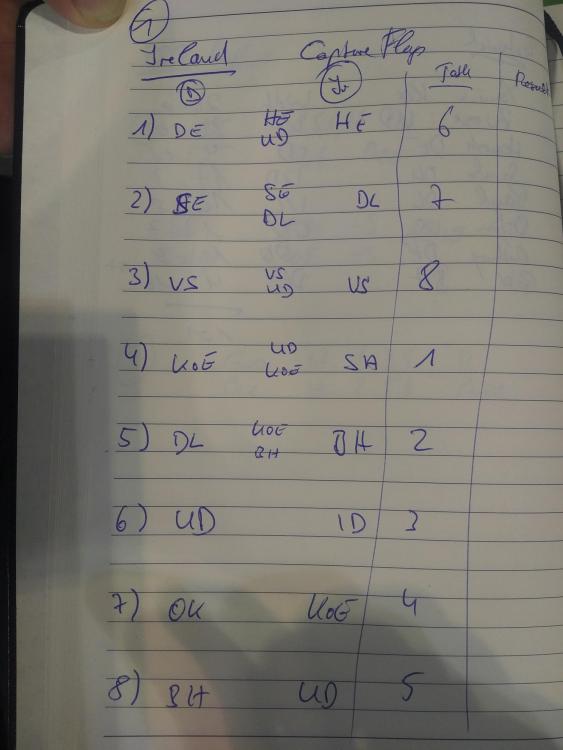 1
Ireland Capture Flap
D Ir Task Result
1) DE HE UD HE 6
2) SE SE DL DL 7
3) VS VS UD VS 8
4) KOE UD KOE SA 1
5) DL KOE BH BH 2
6) UD ID 3
7) OK KOE 4
8) BH UD 5